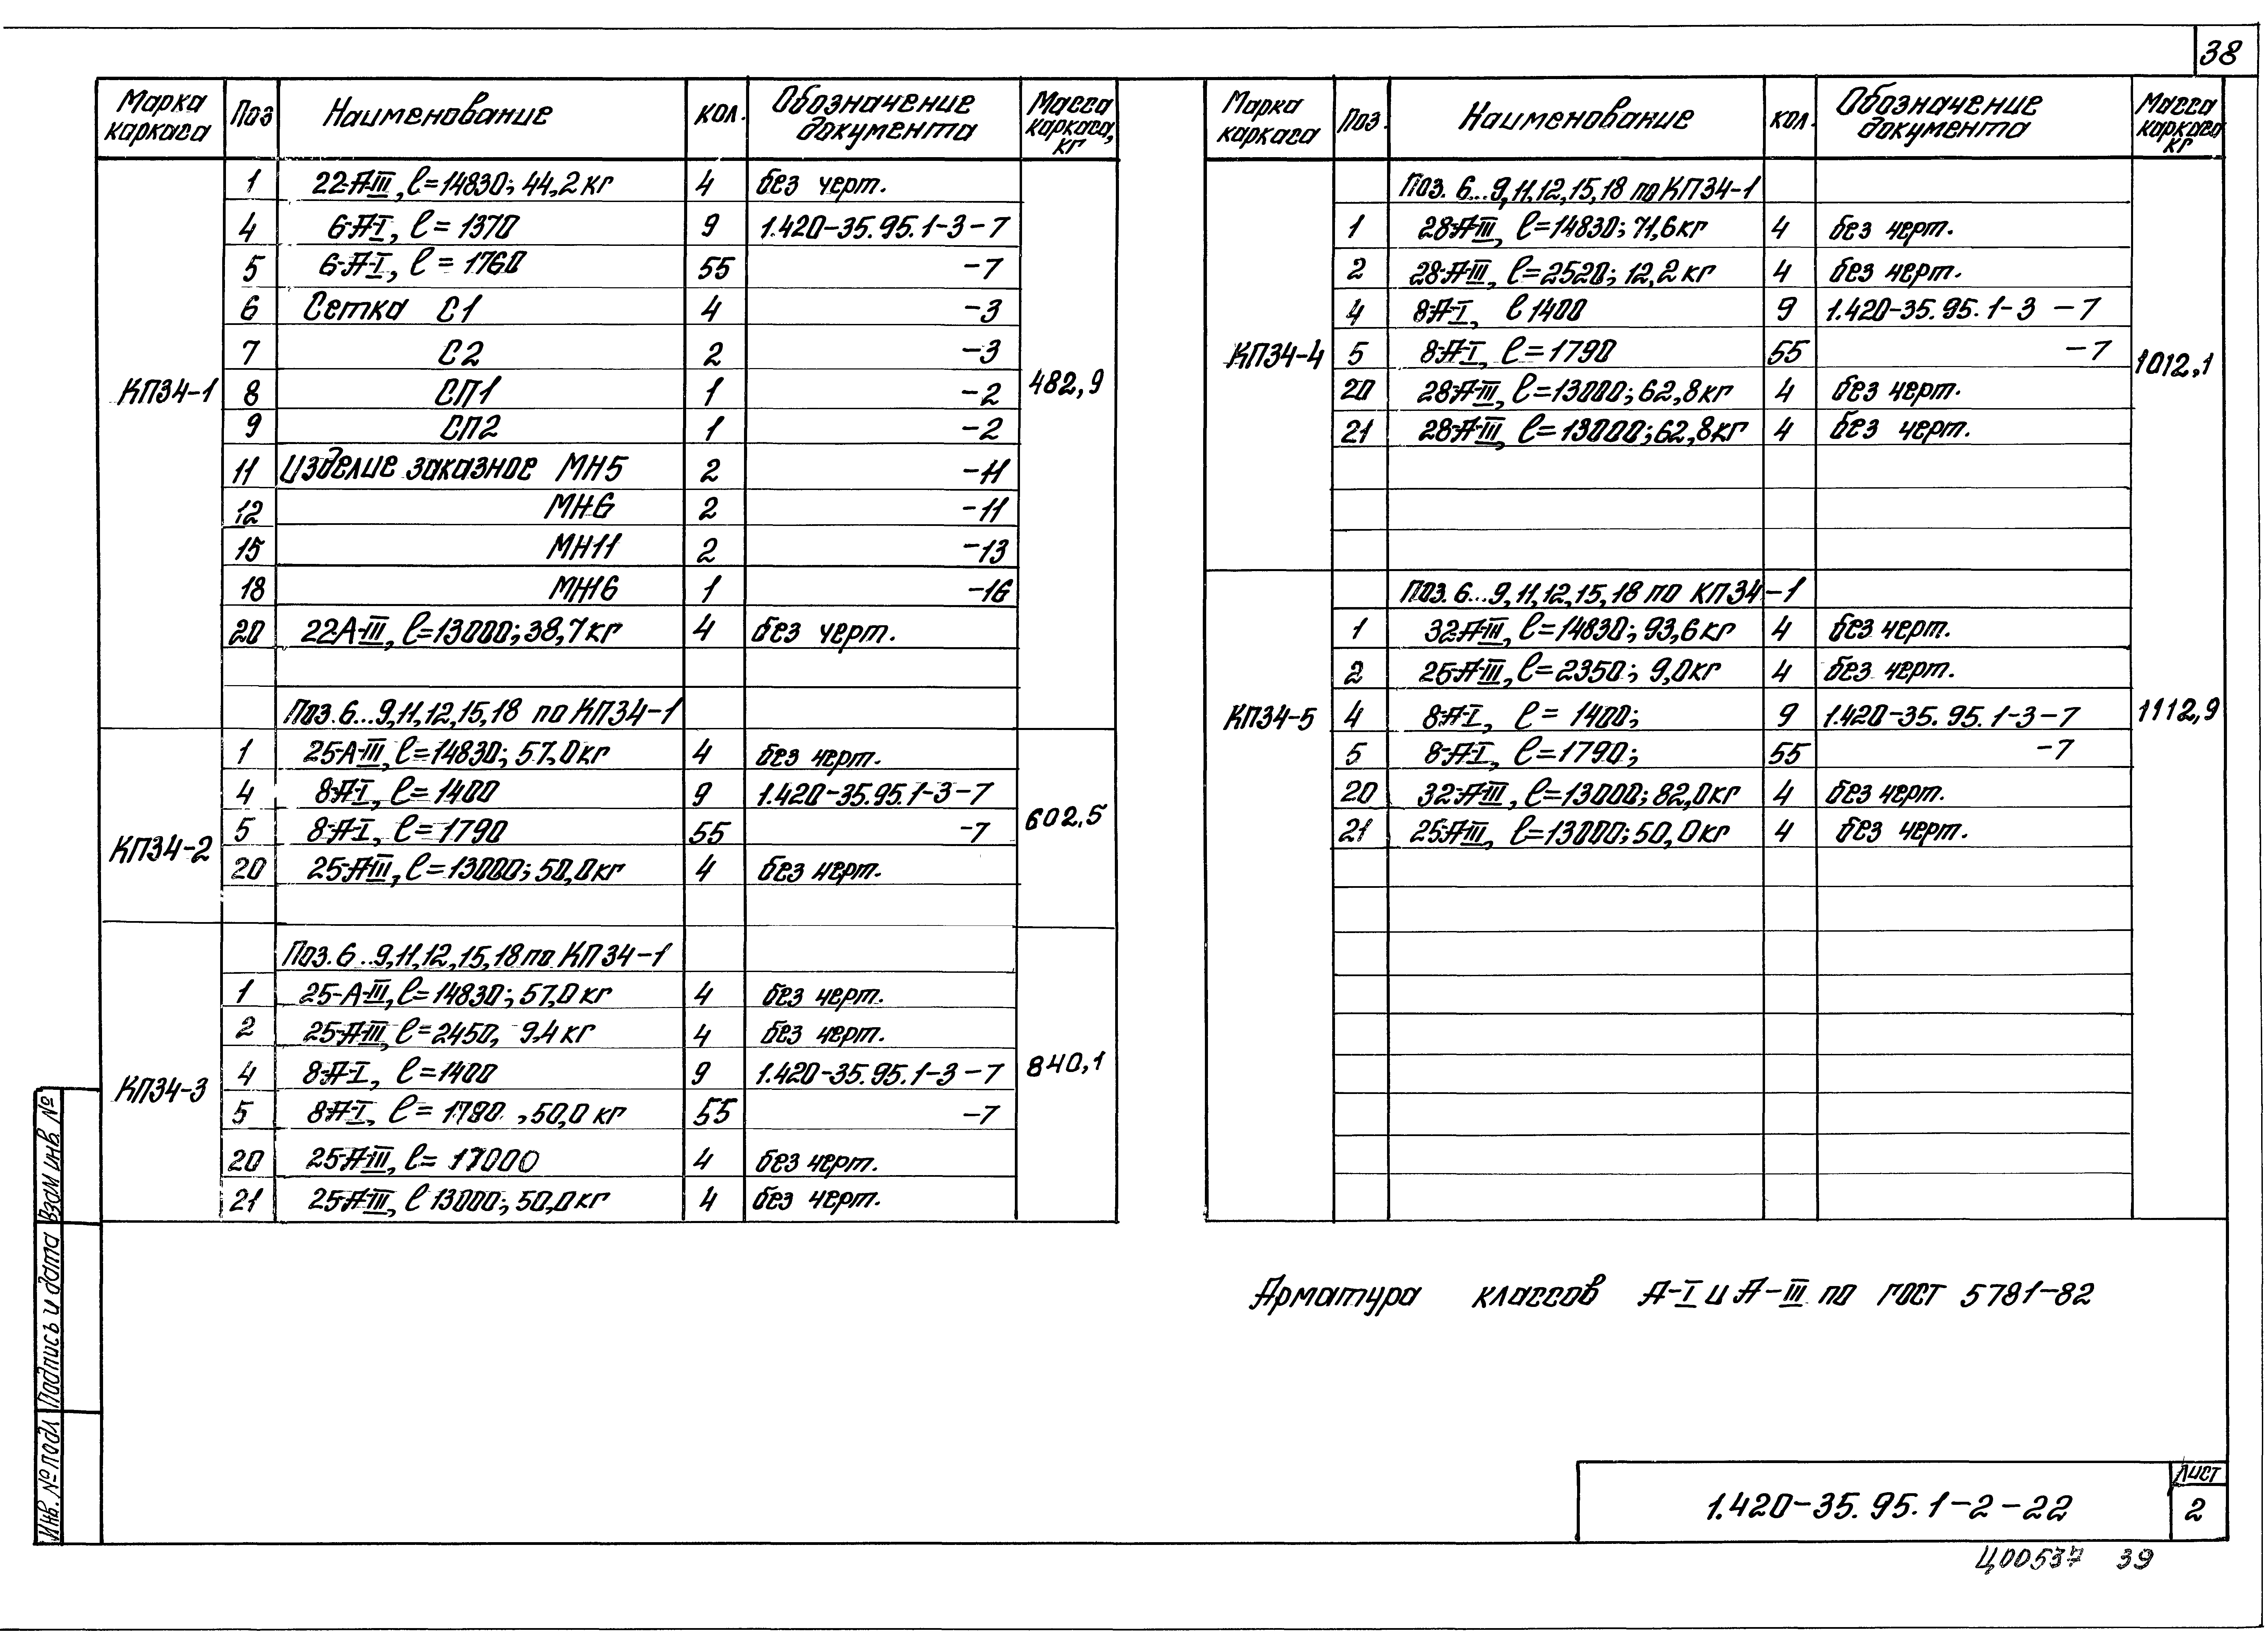 38
Марка каркаса Поз Наименование кол. Обозначение документа Масса каркаса, кг
КП34-1 482,9
1 22-А-III, ℓ=14830; 44,2кг 4 без черт.
4 6-А-I, ℓ=1370 9 1.420-35.95.1-3-7
5 6-А-I, ℓ=1760 55 -7
6 Сетка С1 4 -3
7 С2 2 -3
8 СП1 1 -2
9 СП2 1 -2
11 Изделие заказное МН5 2 -11
12 МН6 2 -11
15 МН11 2 -13
18 МН16 1 -16
20 22-А-III, ℓ=13000; 38,7кг 4 без черт.
Поз. 6...9,11,12,15,18 по КП34-1
КП34-2 602,5
1 25-А-III, ℓ=14830; 57,0кг 4 без черт.
4 8-А-I, ℓ=1400 9 1.420-35.95.1-3-7
5 8-А-I, ℓ=1790 55 -7
20 25-А-III, ℓ=13000; 50,0кг 4 без черт.
КП34-3 840,1
Поз. 6...9,11,12,15,18 по КП34-1
1 25-А-III, ℓ=14830; 57,0кг 4 без черт.
2 25-А-III, ℓ=2450, 9,4кг 4 без черт.
4 8-А-I, ℓ=1400 9 1.420-35.95.1-3-7
5 8-А-I, ℓ=1790 , 50,0кг 55 -7
20 25-А-III, ℓ= 17000 4 без черт.
21 25-А-III, ℓ 13000; 50,0кг 4 без черт.
Марка каркаса Поз. Наименование кол. Обозначение документа Масса каркаса кг
КП34-4 1012,1
Поз. 6...9,11,12,15,18 по КП34-1
1 28-А-III, ℓ=14830; 71,6кг 4 без черт.
2 28-А-III, ℓ=2520; 12,2кг 4 без черт.
4 8-А-I, ℓ 1400 9 1.420-35.95.1-3 -7
5 8-А-I, ℓ=1790 55 -7
20 28-А-III, ℓ=13000; 62,8кг 4 без черт.
21 28-А-III, ℓ=13000; 62,8кг 4 без черт.
КП34-5 1112,9
Поз. 6...9,11,12,15,18 по КП34-1
1 32-А-III, ℓ=14830; 93,6кг 4 без черт.
2 25-А-III, ℓ=2350; 9,0кг 4 без черт.
4 8-А-I, ℓ= 1400; 9 1.420-35.95.1-3-7
5 8-А-I, ℓ=1790; 55 -7
20 32-А-III, ℓ=13000; 82,0кг 4 без черт.
21 25-А-III, ℓ=13000; 50,0кг 4 без черт.
Арматура классов А-I и А-III по ГОСТ 5781-82
Взам инв. №
Подпись и дата
Инв. № подл
1.420-35.95.1-2-22
Лист
2
Ц00537 39